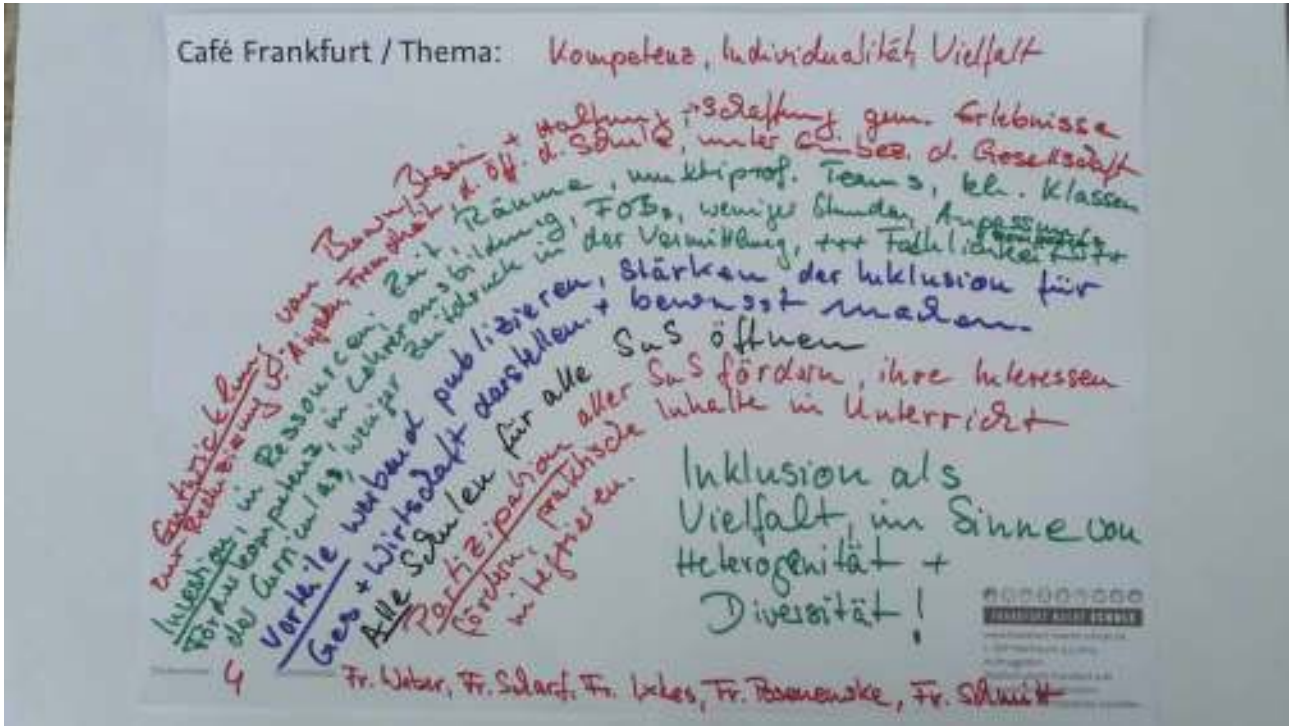 Café Frankfurt / Thema: Kompetenz, Individualität, Vielfalt
Entwicklung von Bewusstsein + Haltung, Schaffung gem. Erlebnisse
zur Reduzierung v. Ängsten, Fremdheit, d. Öff. d. Schule, unter Einbez. d. Gesellschaft
Investion, in Ressourcen, Zeit, Räume, multiprof. Teams, kl. Klassen
Förderkompetenz, in Lehrerausbildung, FOBs, weniger Stunden, Anpassung
des Curriculas, weniger Zeitdruck in der Vermittlung, +++ Fachlichkeit +++
Vorteile werbend publizieren, Stärken der Inklusion für
Ges + Wirtschaft darstellen + bewusst machen.
Alle Schulen für alle SuS öffnen
Partizipation aller SuS fördern, ihre Interessen
fördern, praktische Inhalte in Unterricht
integrieren.
Inklusion als
Vielfalt, im Sinne von
Heterogenität +
Diversität!
FRANKFURT MACHT SCHULE
4
Fr. Weber, Fr. Scharf, Fr. Fr. Schmitt